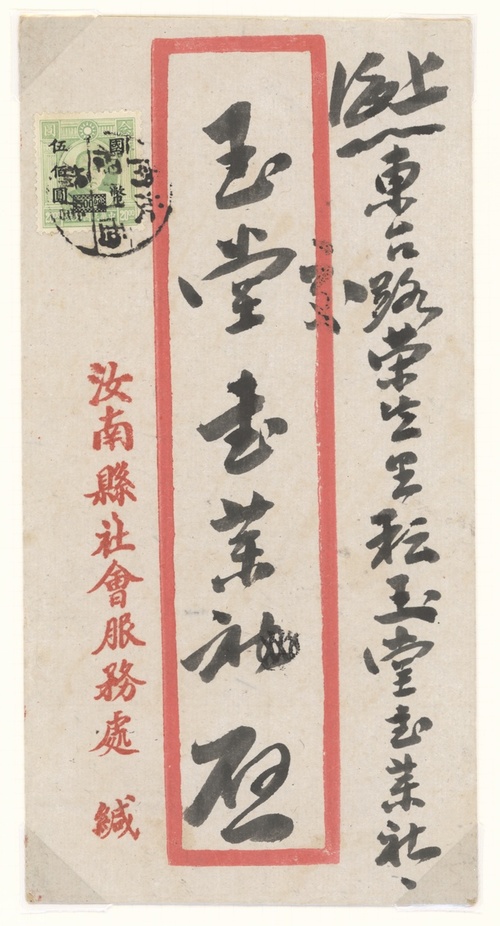 上海
東台路荣生里玉堂書業社、
玉堂書業社 啟
國幣
伍佰圓
汝南縣社會服務處 緘